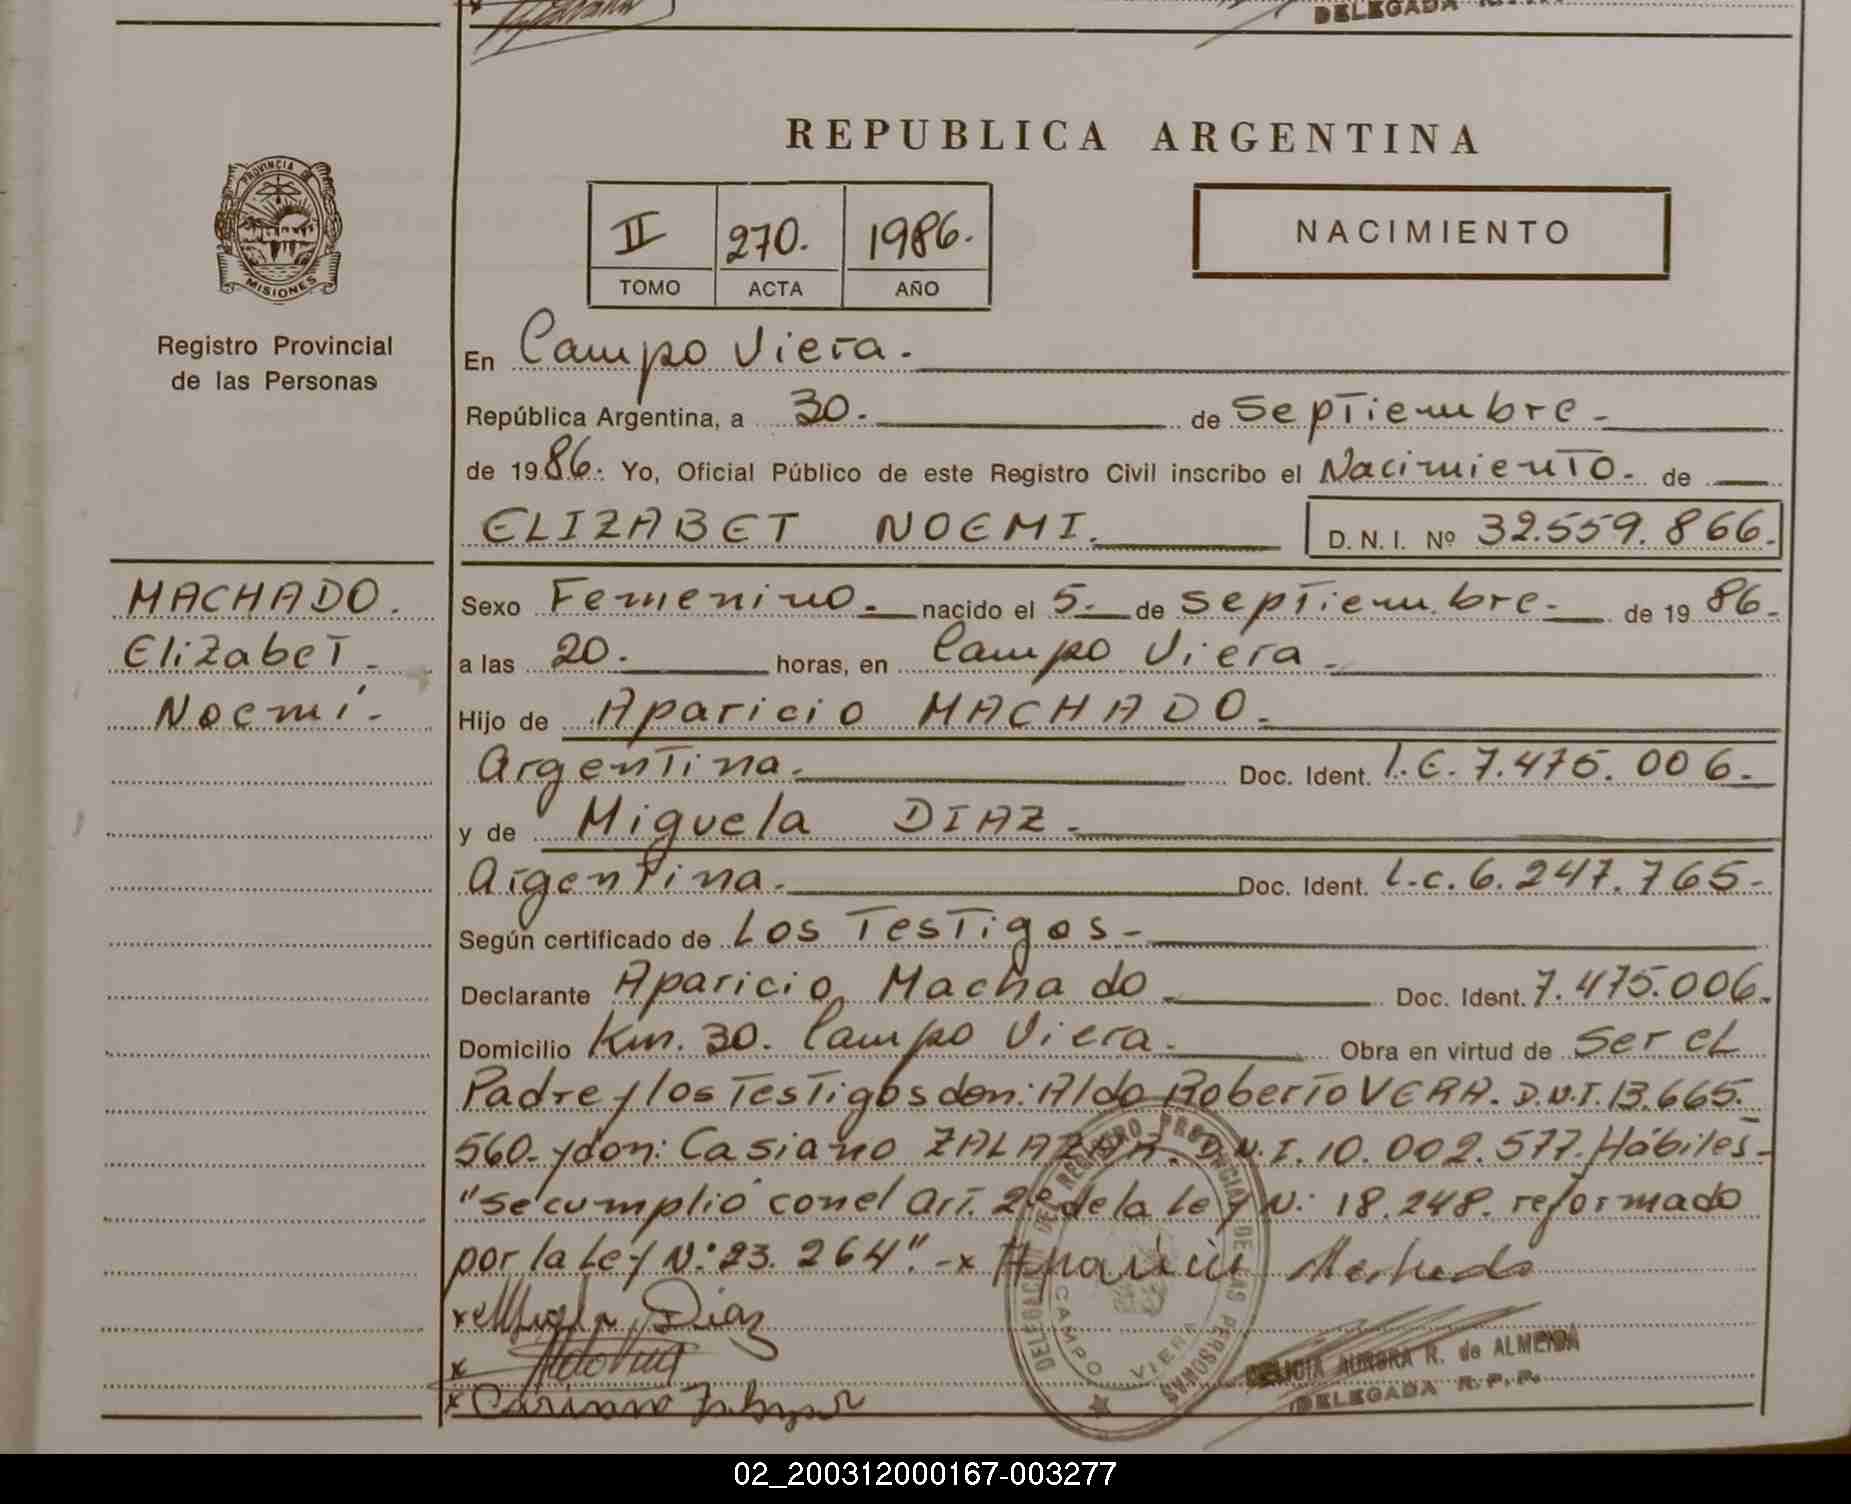 DELEGADA
REPUBLICA ARGENTINA
PROVINCIA DE
MISIONES
Registro Provincial
de las Personas
II 270. 1986.
TOMO ACTA AÑO
NACIMIENTO
En Campo Viera.
República Argentina, a 30. de Septiembre.
de 1986. Yo, Oficial Público de este Registro Civil inscribo el Nacimiento. de
ELIZABET NOEMI. D. N. I. Nº 32.559.866.
MACHADO.
Elizabet
Noemí.
Sexo Femenino. nacido el 5. de Septiembre. de 1986.
a las 20. horas, en Campo Viera.
Hijo de Aparicio MACHADO.
Argentina. Doc. Ident. L.E. 7.475.006.
y de Miguela DIAZ.
Argentina. Doc. Ident. L.C. 6.247.765.
Según certificado de Los Testigos.
Declarante Aparicio Machado Doc. Ident. 7.475.006.
Domicilio Km. 30. Campo Viera. Obra en virtud de ser el
Padre y los Testigos don: Aldo Roberto VERA. D.N.I. 13.665.
560. y don: Casiano ZALAZAR. D.N.I. 10.002.577. Hábiles.
"se cumplió con el Art. 2º de la Ley N: 18.248. reformado
por la Ley N: 23.264". - x Aparicio Machado
x Miguela Diaz
x
x Casiano Zalazar
DELEGACION DEL REGISTRO PROVINCIAL DE LAS PERSONAS
CAMPO VIERA
DELICIA AURORA R. de ALMEIDA
DELEGADA R.P.P.
02_200312000167-003277